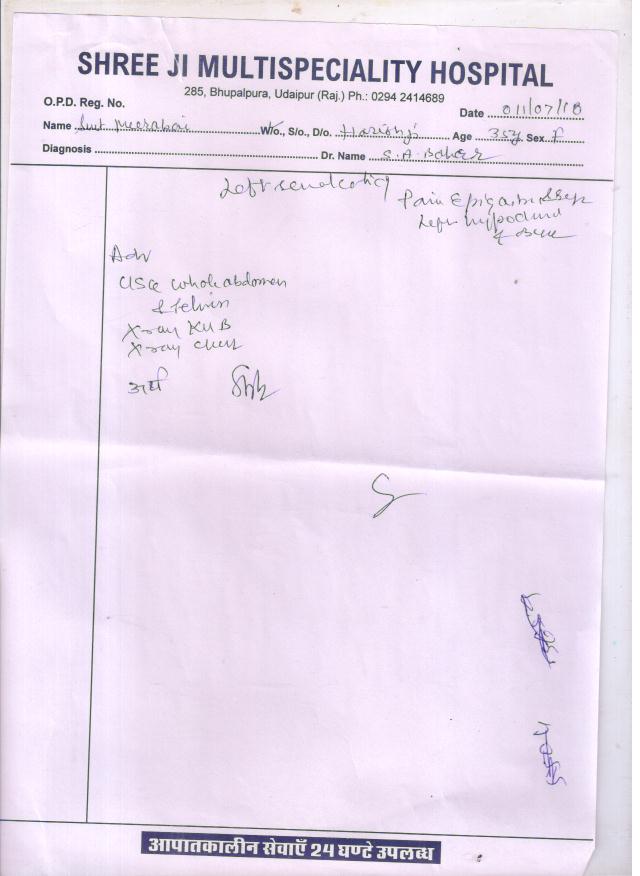 SHREE JI MULTISPECIALITY HOSPITAL
285, Bhupalpura, Udaipur (Raj.) Ph.: 0294 2414689
O.P.D. Reg. No.
Date 01/07/18
Name Smt Meerabai W/o., S/o., D/o. Harishji Age 35y Sex F
Diagnosis Dr. Name S.A.
Left renal colic
Pain Epigastri
Left hypochond
Adv
USG whole abdomen
& Pelvis
X-ray KUB
X-ray chest
आपातकालीन सेवाएँ 24 घण्टे उपलब्ध